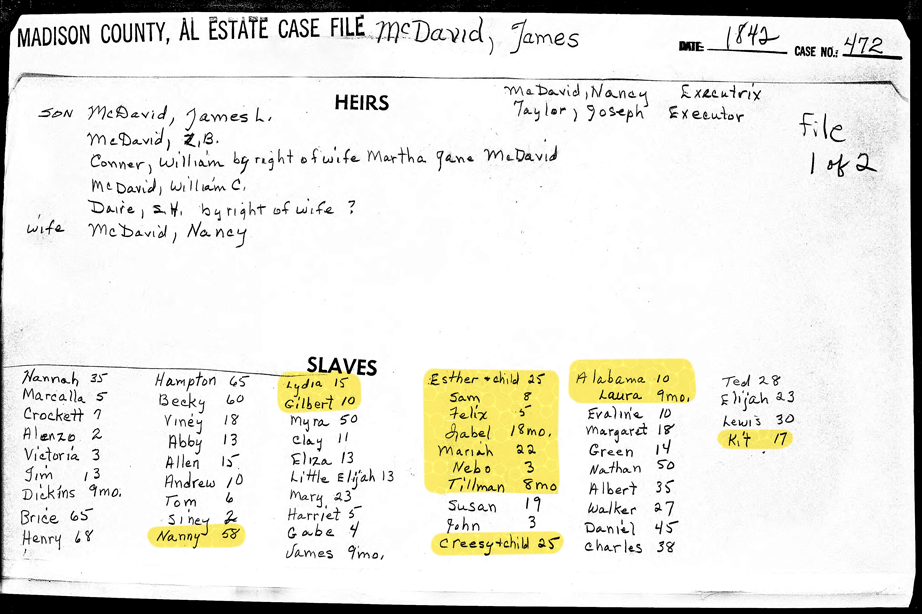 MADISON COUNTY, AL ESTATE CASE FILE McDavid, James
DATE: 1842 CASE NO.: 472
HEIRS
McDavid, Nancy Executrix
Taylor, Joseph Executor
File
1 of 2
SON McDavid, James L.
McDavid, Z.B.
Conner, William by right of wife Martha Jane McDavid
McDavid, William C.
Daire, S.H. by right of wife ?
wife McDavid, Nancy
SLAVES
Hannah 35
Marcalla 5
Crockett 7
Alenzo 2
Victoria 3
Jim 13
Dickins 9mo.
Brice 65
Henry 68
Hampton 65
Becky 60
Viney 18
Abby 13
Allen 15
Andrew 10
Tom 6
Siney 2
Nanny 58
Lydia 15
Gilbert 10
Myra 50
Clay 11
Eliza 13
Little Elijah 13
Mary 23
Harriet 5
Gabe 4
James 9mo.
Esther + child 25
Sam 8
Felix 5
Isabel 18mo.
Mariah 22
Nebo 3
Tillman 8mo
Susan 19
John 3
Creesy + child 25
Alabama 10
Laura 9mo.
Evaline 10
Margaret 18
Green 14
Nathan 50
Albert 35
Walker 27
Daniel 45
Charles 38
Ted 28
Elijah 23
Lewis 30
Kit 17